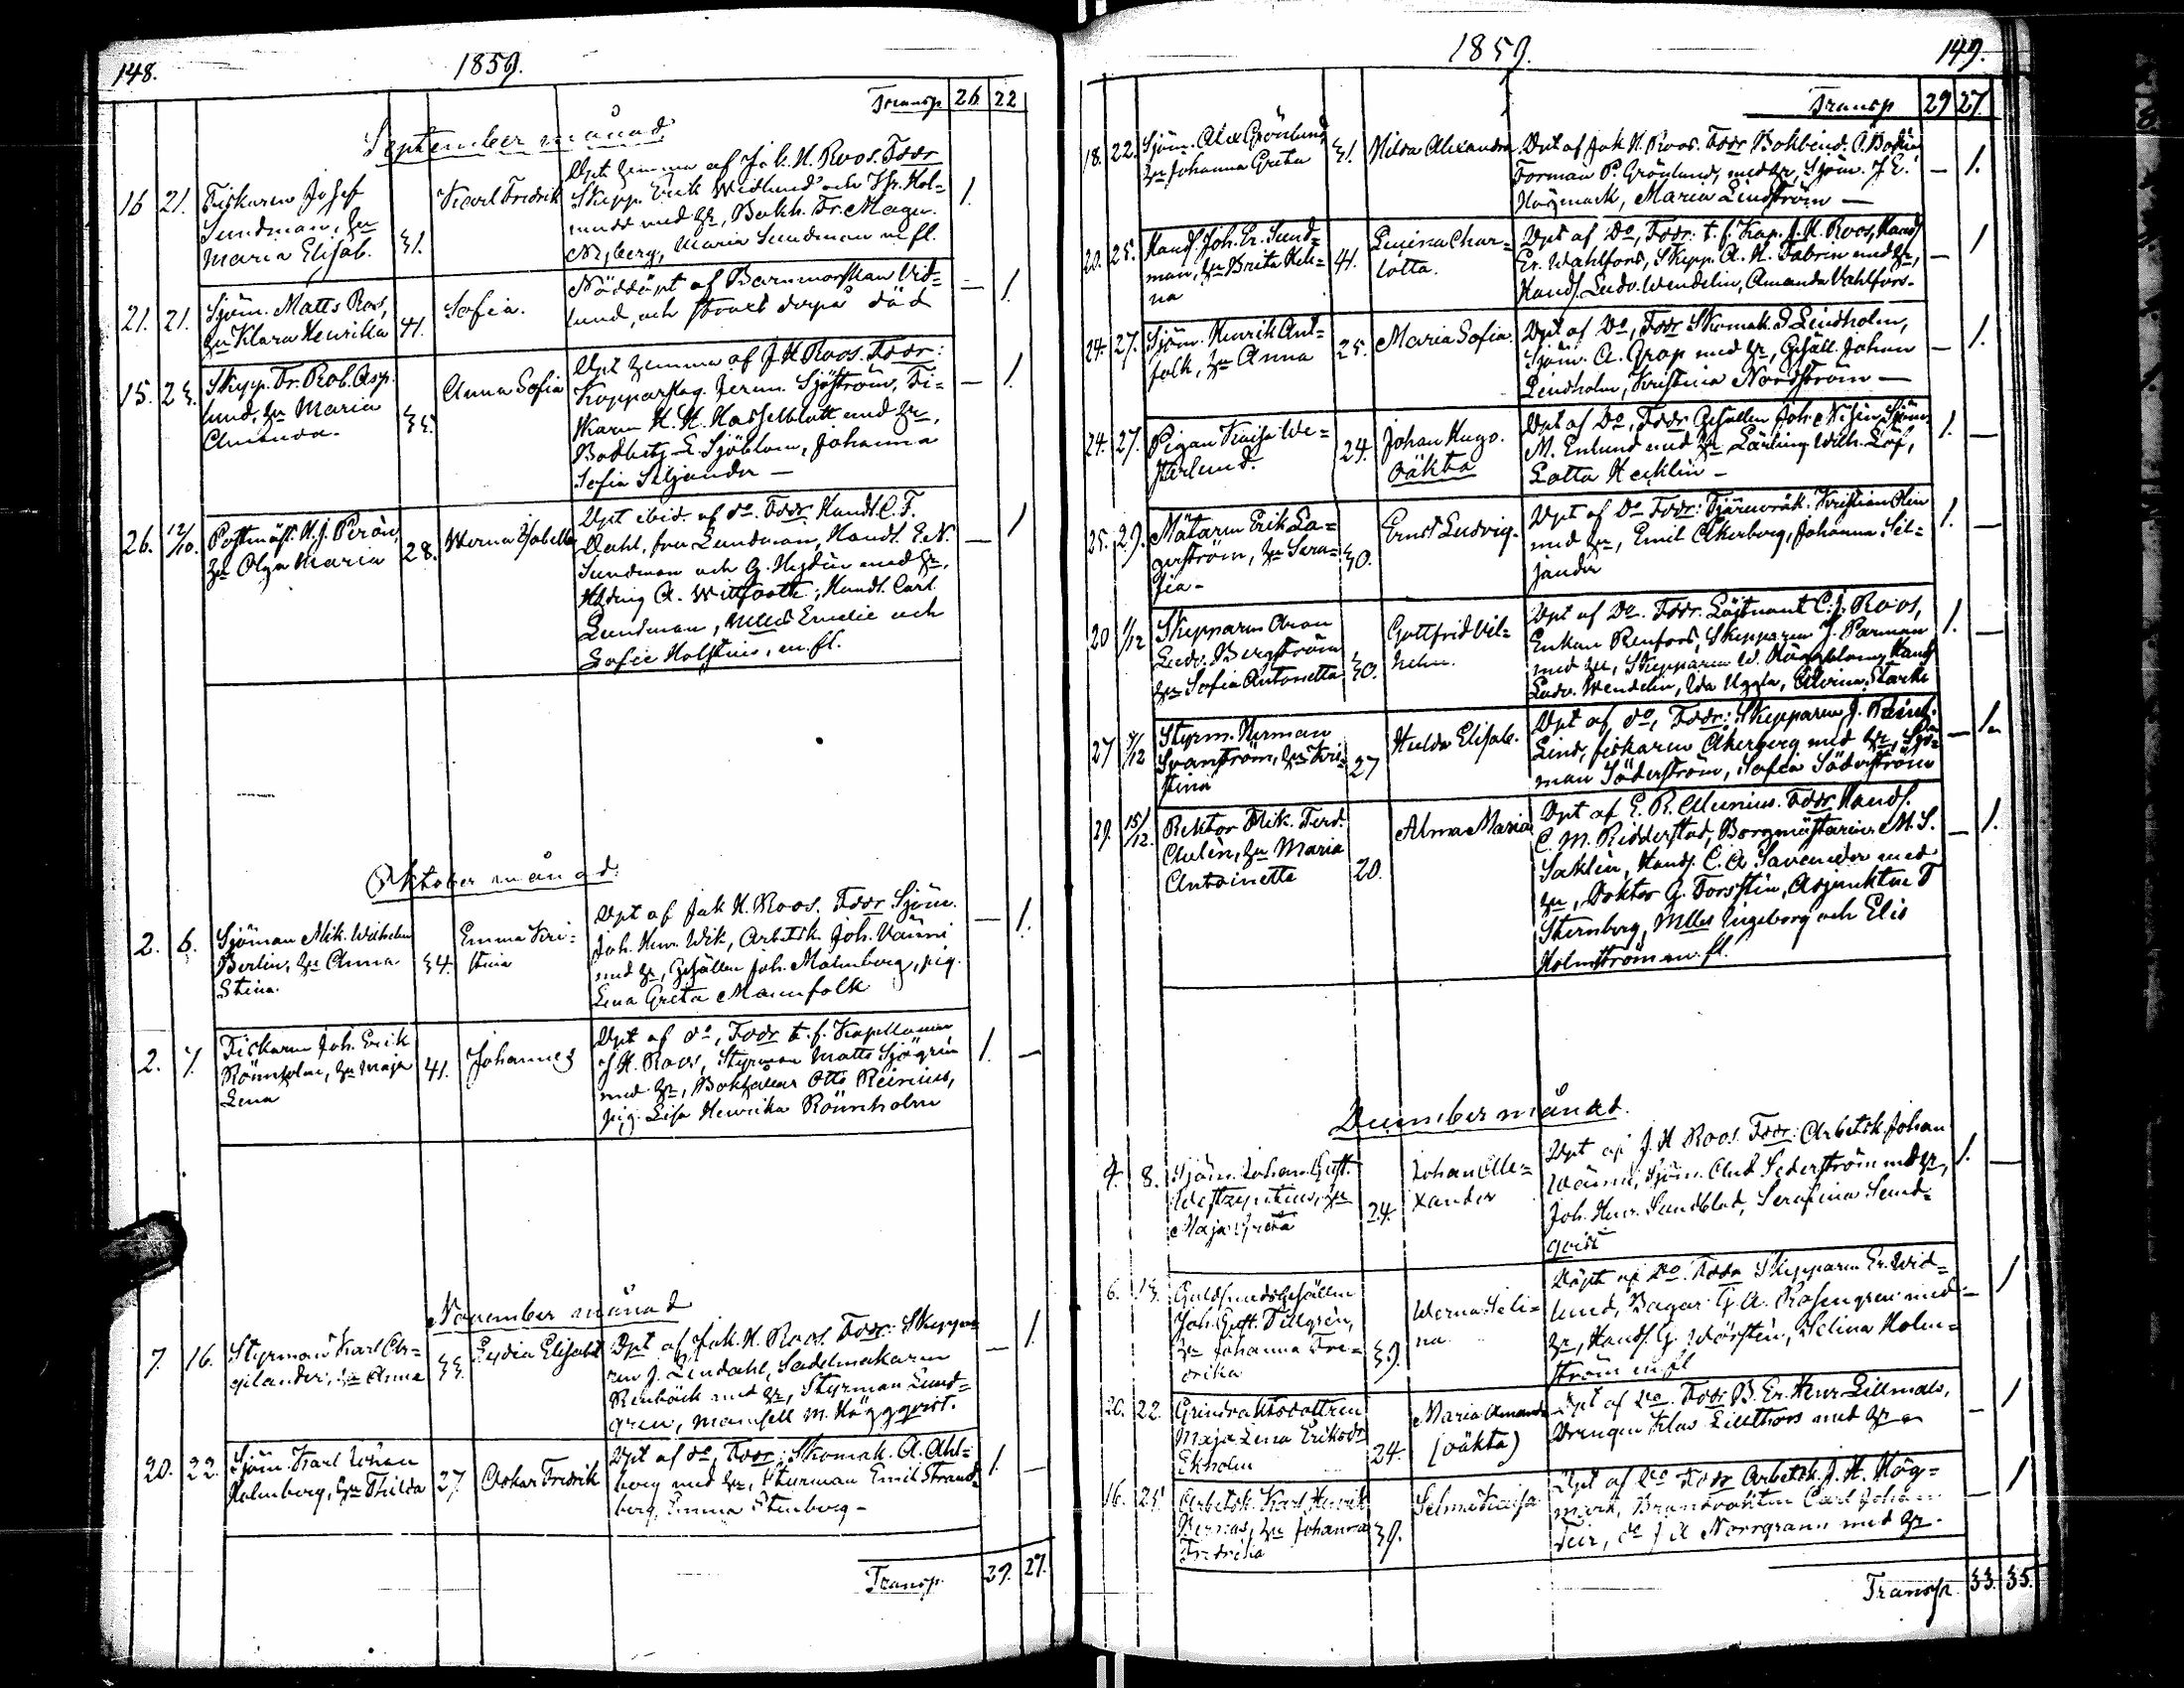 148. 1859.
Transp 26 22
September månad
16 21. Fiskaren Josef
Sundman, hu
Maria Elisab. 31.
Karl Fredrik
Dpt hemma af Jak. H. Roos. Fddr
Skepp. Erik Widlund och Hr. Hol-
med hu, Bokh. Fr. Magn.
Nyberg, Maria Sundman m fl. 1.
21. 21. Sjöm. Matts Ros,
hu Klara Henrika 41.
Sofia.
Nöddöpt af Barnmorskan Wid-
lund, och straxt derpå död — 1.
15. 23. Skepp. Fr. Rob. Asp-
lund, hu Maria
Amanda. 35.
Anna Sofia
Dpt hemma af J H Roos. Fddr:
Kopparslag. Herm. Sjöström, Fi-
skaren H. H. Hasselblatt med hu,
E. Sjöblom, Johanna
Sofia Siljander — — 1.
26. 12/10. Postmäst. H. J. Perón,
hu Olga Maria 28.
Werna Isabella
Dpt ibid. af do. Fddr Handl. C. F.
Dahl, fru Lundman, Handl. E. N.
Sundman och G. Hydén med hu,
A. Witfooth, Handl. Carl
Lundman, Mlles Emelie och
Sofie Holstius, m. fl. — 1
Oktober månad.
2. 6. Sjöman Mik. Wilhelm
Berlin, hu Anna
Stina. 34.
Emma Kri-
stina
Dpt af Jak H. Roos. Fddr Sjöm.
Joh. Henr. Wik, Arbetsk. Joh. Vänni
med hu, Gesällen Joh. Malmberg, pig.
Lena Greta Mannfolk — 1.
2. 7. Fiskaren Joh. Erik
Rönnholm, hu Maja
Lena 41.
Johannes
Dpt af do, Fddr t. f. Kapellanen
J H. Roos, Styrman Matts Sjögrén
med hu, Bokhållar Otto Reinius,
pig. Lisa Henrika Rönnholm 1. —
November månad
7. 16. Styrman Karl Ar-
gilander, hu Anna 33.
Lydia Elisabet
Dpt af Jak. H. Roos. Fddr: Skeppa-
ren J. Lindahl, Sadelmakaren
Renbäck med hu, Styrman Lund-
gren, Mamsell M. Häggqvist. — 1.
20. 22. Sjöm. Karl Johan
Holmberg, hu Thilda 27.
Oskar Fredrik
Dpt af do, Fddr: Skomak. A. Ahl-
berg med hu, Styrman Emil Strand-
berg, Emma Stenberg — 1. —
Transp. 29. 27.
1859. 149.
Transp 29 27.
18. 22. Sjöm. Alex Grönlund,
hu Johanna Greta 31.
Hilda Alexandra
Dpt af Jak H. Roos. Fddr Bokbind. A. Bodin
Forman P. Grönlund, med hu, Sjöm. J E.
Högmark, Maria Lindström — — 1.
20. 25. Handl. Joh. Er. Sund-
man, hu Brita Hele-
na 41.
Lovina Char-
lotta.
Dpt af Do, Fddr: t. f. Kap. J. H. Roos, Handl
Er. Wahlfors, Skepp. A. H. Fabrin med hu,
Handl. Ludv. Wendelin, Amanda Vahlfors. — 1
24. 27. Sjöm. Henrik Ant-
folk, hu Anna 25.
Maria Sofia.
Dpt af Do, Fddr Skomak. S Lindholm,
Sjöm. A. Grop med hu, Gesäll. Johan
Lindholm, Kristina Nordström — — 1.
24. 27. Pigan Kaisa We-
sterlund. 24.
Johan Hugo.
oäkta
Dpt af Do, Fddr Gesällen Joh.
M. Enlund med hu Lärling Wilh. Löf,
Lotta Hecklin — 1. —
25. 29. Mätaren Erik La-
gerström, hu Sera-
fia. 30.
Ernst Ludvig.
Dpt af Do Fddr: Kristian Olin
med hu, Emil Åkerberg, Johanna Sil-
jander 1. —
20 1/12 Skepparen Aron
Ludv. Bergström
hu Sofia Antonetta 30.
Gottfrid Vil-
helm.
Dpt af Do. Fddr. Löjtnant C. J. Roos,
Enkan Renfors, Skepparen J. Parman
med hu, Skepparen W. Häggblom, Handl
Ludv. Wendelin, Ida Uggla, Alvina Starke 1. —
27 7/12 Styrm. Herman
Svanström, hu Kri-
stina 27
Hulda Elisab.
Dpt af do, Fddr: Skepparen J. Reinh.
Lind, fiskaren Åkerberg med hu, Sjö-
man Söderström, Sofia Söderström — 1.
29. 15/12. Rektor Mik. Ferd.
hu Maria
Antoinette 20.
Alma Maria
Dpt af E. R. Alcenius. Fddr Handl.
C. M. Ridderstad, Borgmästaren M. S.
Saklén, Handl. C. A Savander med
hu, Doktor G. Forstén, Adjunkten T
Sternberg, Mlles Ingeborg och Elis
Holmström m. fl. — 1.
December månad.
4. 8. Sjöm. Johan Gust.
Westzyntius, hu
Maja Greta 24.
Johan Ale-
xander
Dpt af J. H Roos. Fddr: Arbetsk. Johan
Wänni, Sjöm. And. Sederström med hu,
Joh. Henr. Sundblad, Serafina Sund-
qvist 1. —
6. 13. Guldsmedsgesällen
Joh. Gust. Tillgrén,
hu Johanna Fre-
drika 39.
Werna Seli-
na
Döpt af Do. Fddr Skepparen Er. Wid-
lund, Bagar G. A. Rosengren med
hu, Handl. G. Selina Holm-
ström m fl — 1
20. 22 Grindvaktsdottren
Maja Lena Eriksdr
Ekholm 24.
Maria Amanda
(oäkta)
Dpt af Do. Fddr B. Er. Henr Lillmats,
Drengen Klas Lillthors med hu — 1
16. 25. Arbetsk. Karl Henrik
hu Johanna
Fredrika 39.
Selma Kaisa
Dpt af Do Fddr Arbetsk. J. H. Hög-
mark, Brandvakten Carl Johan
do J A Norrgrann med hu. — 1
Transp. 33. 35.